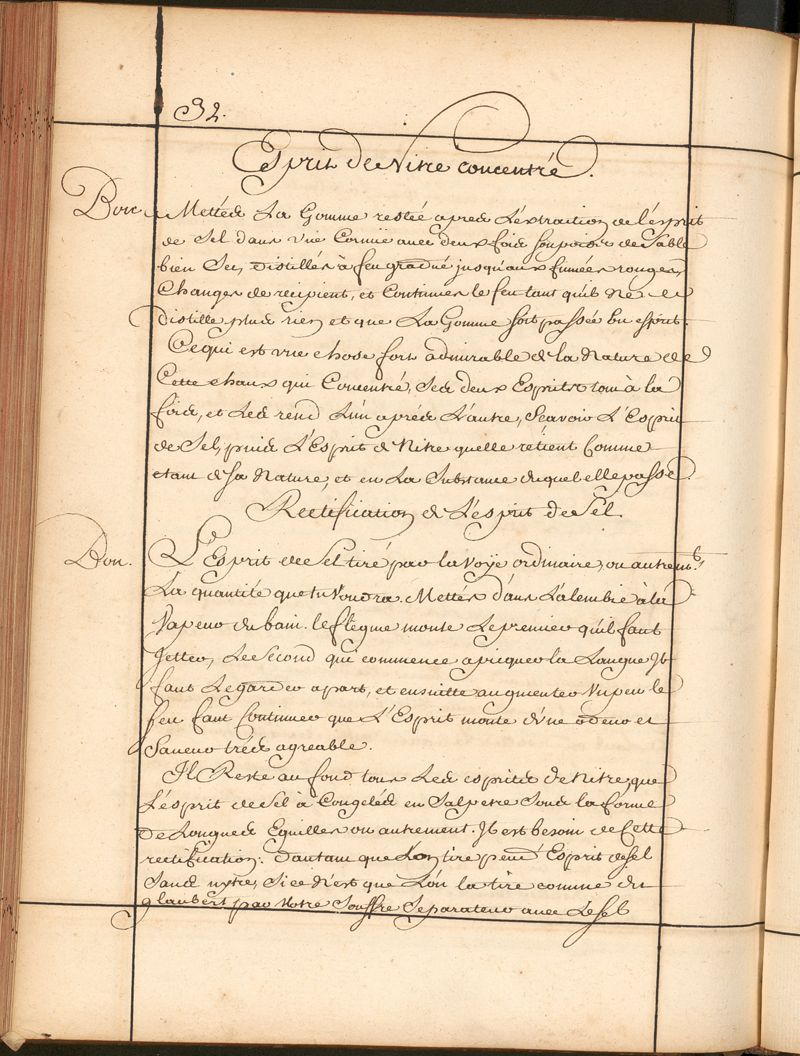 32.
Esprit de Nitre concentré.
Bon. Mettéés La Gomme restée apres L'extraction de l'esprit
de Sel dans une Cornüe auec deux fois son poids de Sable
bien Sec, distillés à feu gradué jusqu'aux fumées rouges,
Changes de recipient, et Continues le feu tant qu'il ne
distille plus rien et que La Gomme soit passée en esprit.
Ce qui est une chose fort admirable de la Nature de
Cette chaux qui Concentre, Ses deux Esprits tout à la
fois, et Les rend L'un aprés L'autre, Scavoir L'Esprit
de Sel, puis L'Esprit de Nitre quelle retient Comme
etant de sa Nature, et en La Substance duquel elle passe.
Rectification de L'esprit de Sel.
Bon. L'Esprit de Sel tiré par la voye ordinaire, ou autremt.
La quantité que tu Voudra. Mettés dans L'alembic à la
Vapeur du bain. le flegme monte Le premier qu'il faut
Jetter, Le Second qui commence a piquer la Langue Il
faut Le garder apart, et ensuitte augmenter Un peu le
feu faut Continuer que L'Esprit monte d'une odeur et
Saueur trés agreable.
Il Reste au fond tous Les esprits de Nitre que
L'esprit de Sel à Congelés en Salpetre Sous la forme
De Longues Eguilles ou autrement. Il est besoin de Cette
rectification. Dautant que Lon tire peu d'Esprit de sel
Sans nytre, Si ce n'est que L'on la tire comme dit
glaubert par Notre Souffre Separateur auec Le sel